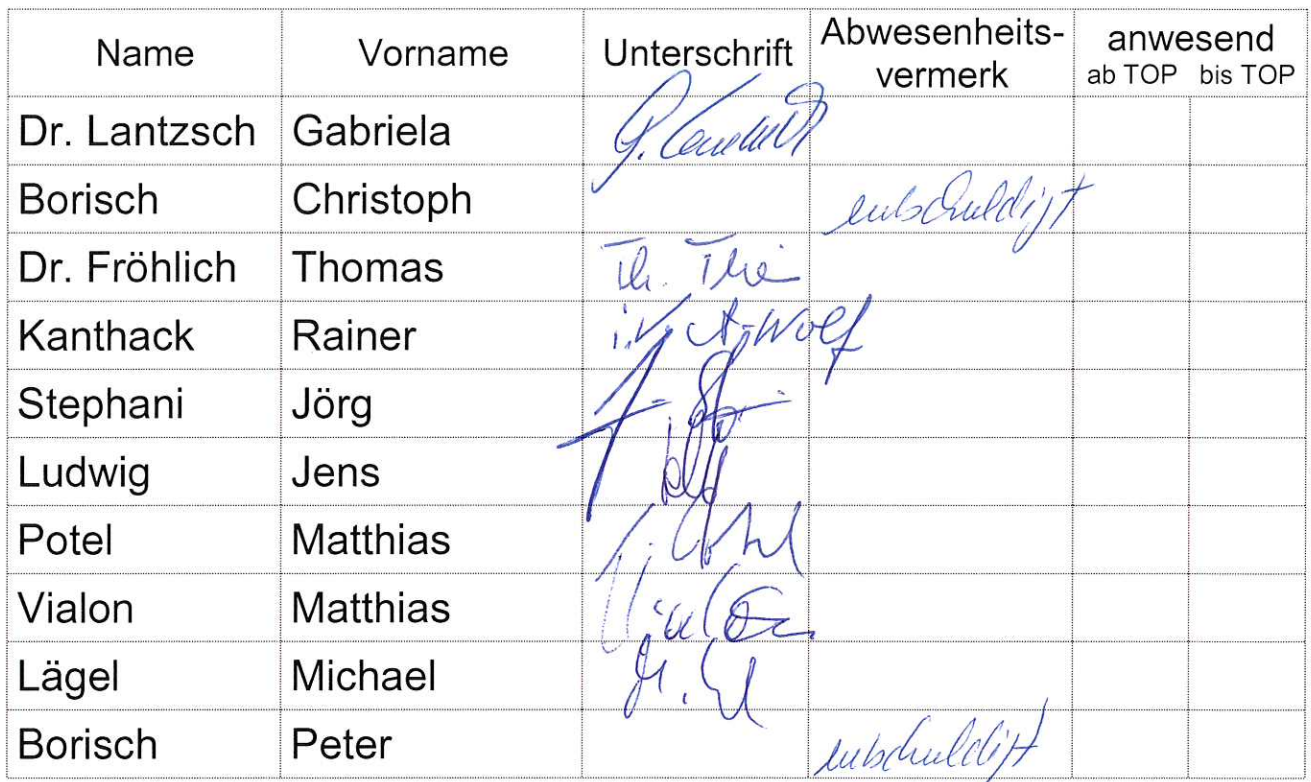 Name Vorname Unterschrift Abwesenheits- anwesend
vermerk ab TOP bis TOP
Dr. Lantzsch Gabriela
Borisch Christoph entschuldigt
Dr. Fröhlich Thomas Th.
Kanthack Rainer i.V. A. Wolf
Stephani Jörg
Ludwig Jens
Potel Matthias
Vialon Matthias
Lägel Michael
Borisch Peter entschuldigt